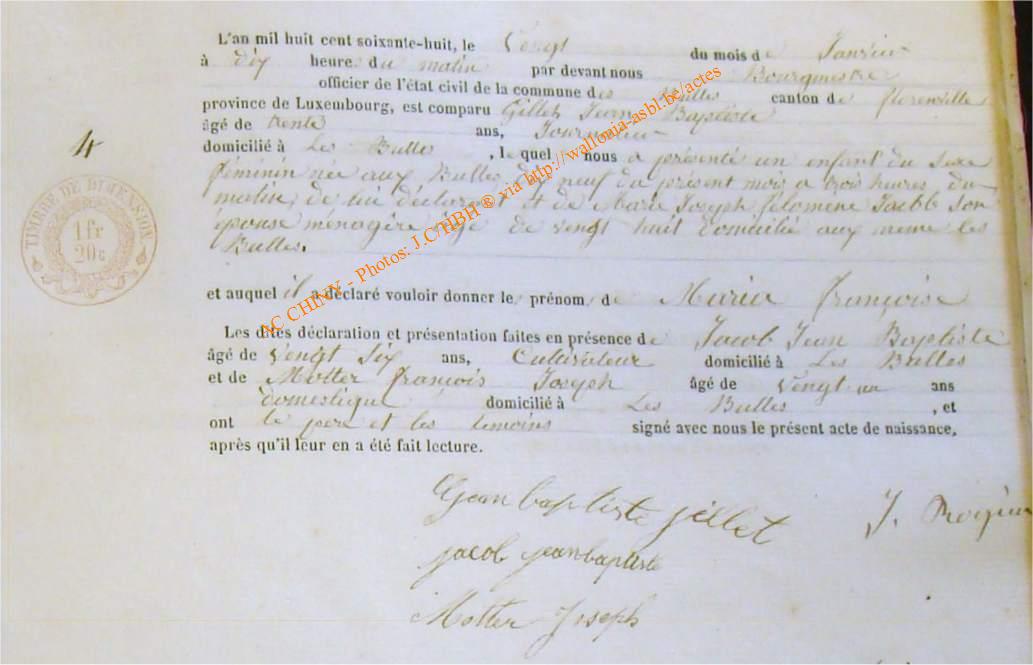 L'an mil huit cent soixante-huit, le Vingt du mois de Janvier
à dix heure du matin par devant nous Bourgmestre
officier de l'état civil de la commune des Bulles canton de florenville
province de Luxembourg, est comparu Gillet Jean Baptiste
âgé de trente ans, Journalier
domicilié à Les Bulles, lequel nous a présenté un enfant du sexe
féminin née aux Bulles dix neuf du présent mois a trois heures du
matin, de lui déclarant et de Marie Joseph filomene Jacob son
épouse ménagère âgé de vingt huit domicilié aux meme les
Bulles.
et auquel il a déclaré vouloir donner le prénom de Maria françoise
Les dites déclaration et présentation faites en présence de Jacob Jean Baptiste
âgé de Vingt Six ans, Cultivateur domicilié à Les Bulles
et de Motter françois Joseph âgé de Vingt un ans
domestique domicilié à Les Bulles, et
ont le pere et les temoins signé avec nous le présent acte de naissance,
après qu'il leur en a été fait lecture.
Jean baptiste gillet J.
jacob jeanbaptiste
Motter Joseph
4
TIMBRE DE DIMENSION
1 fr
20 c
AC CHINY - Photos: J.C/HBH ® via http://wallonia-asbl.be/actes